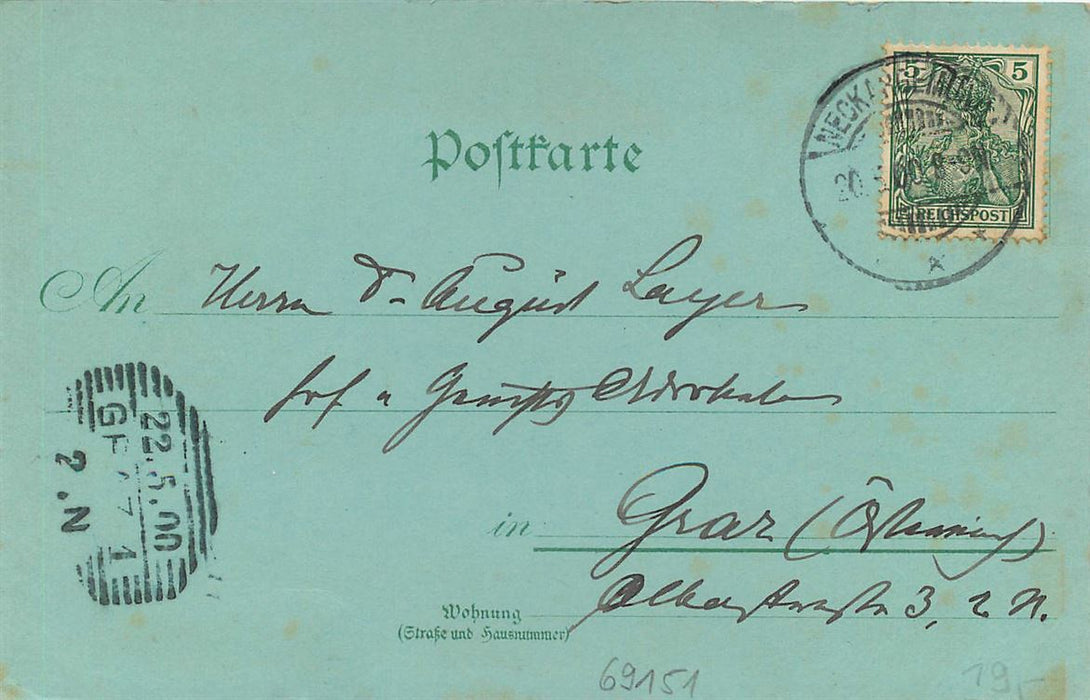 5 5
REICHSPOST
20. 5. 00. 8-9 N
Poſtkarte
An Herrn Dr August Layer
Hof u Gerichts Advokaten
22.5.00
GRAZ 1
2.N
in Graz (Österreich)
3, 2 St.
Wohnung
(Straße und Hausnummer)
69151
19,-